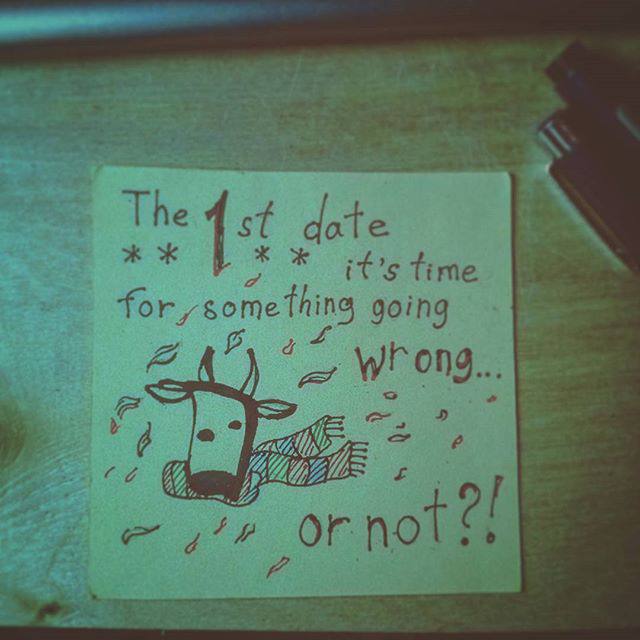 The 1st date
** ** it's time
for something going
wrong...
or not?!